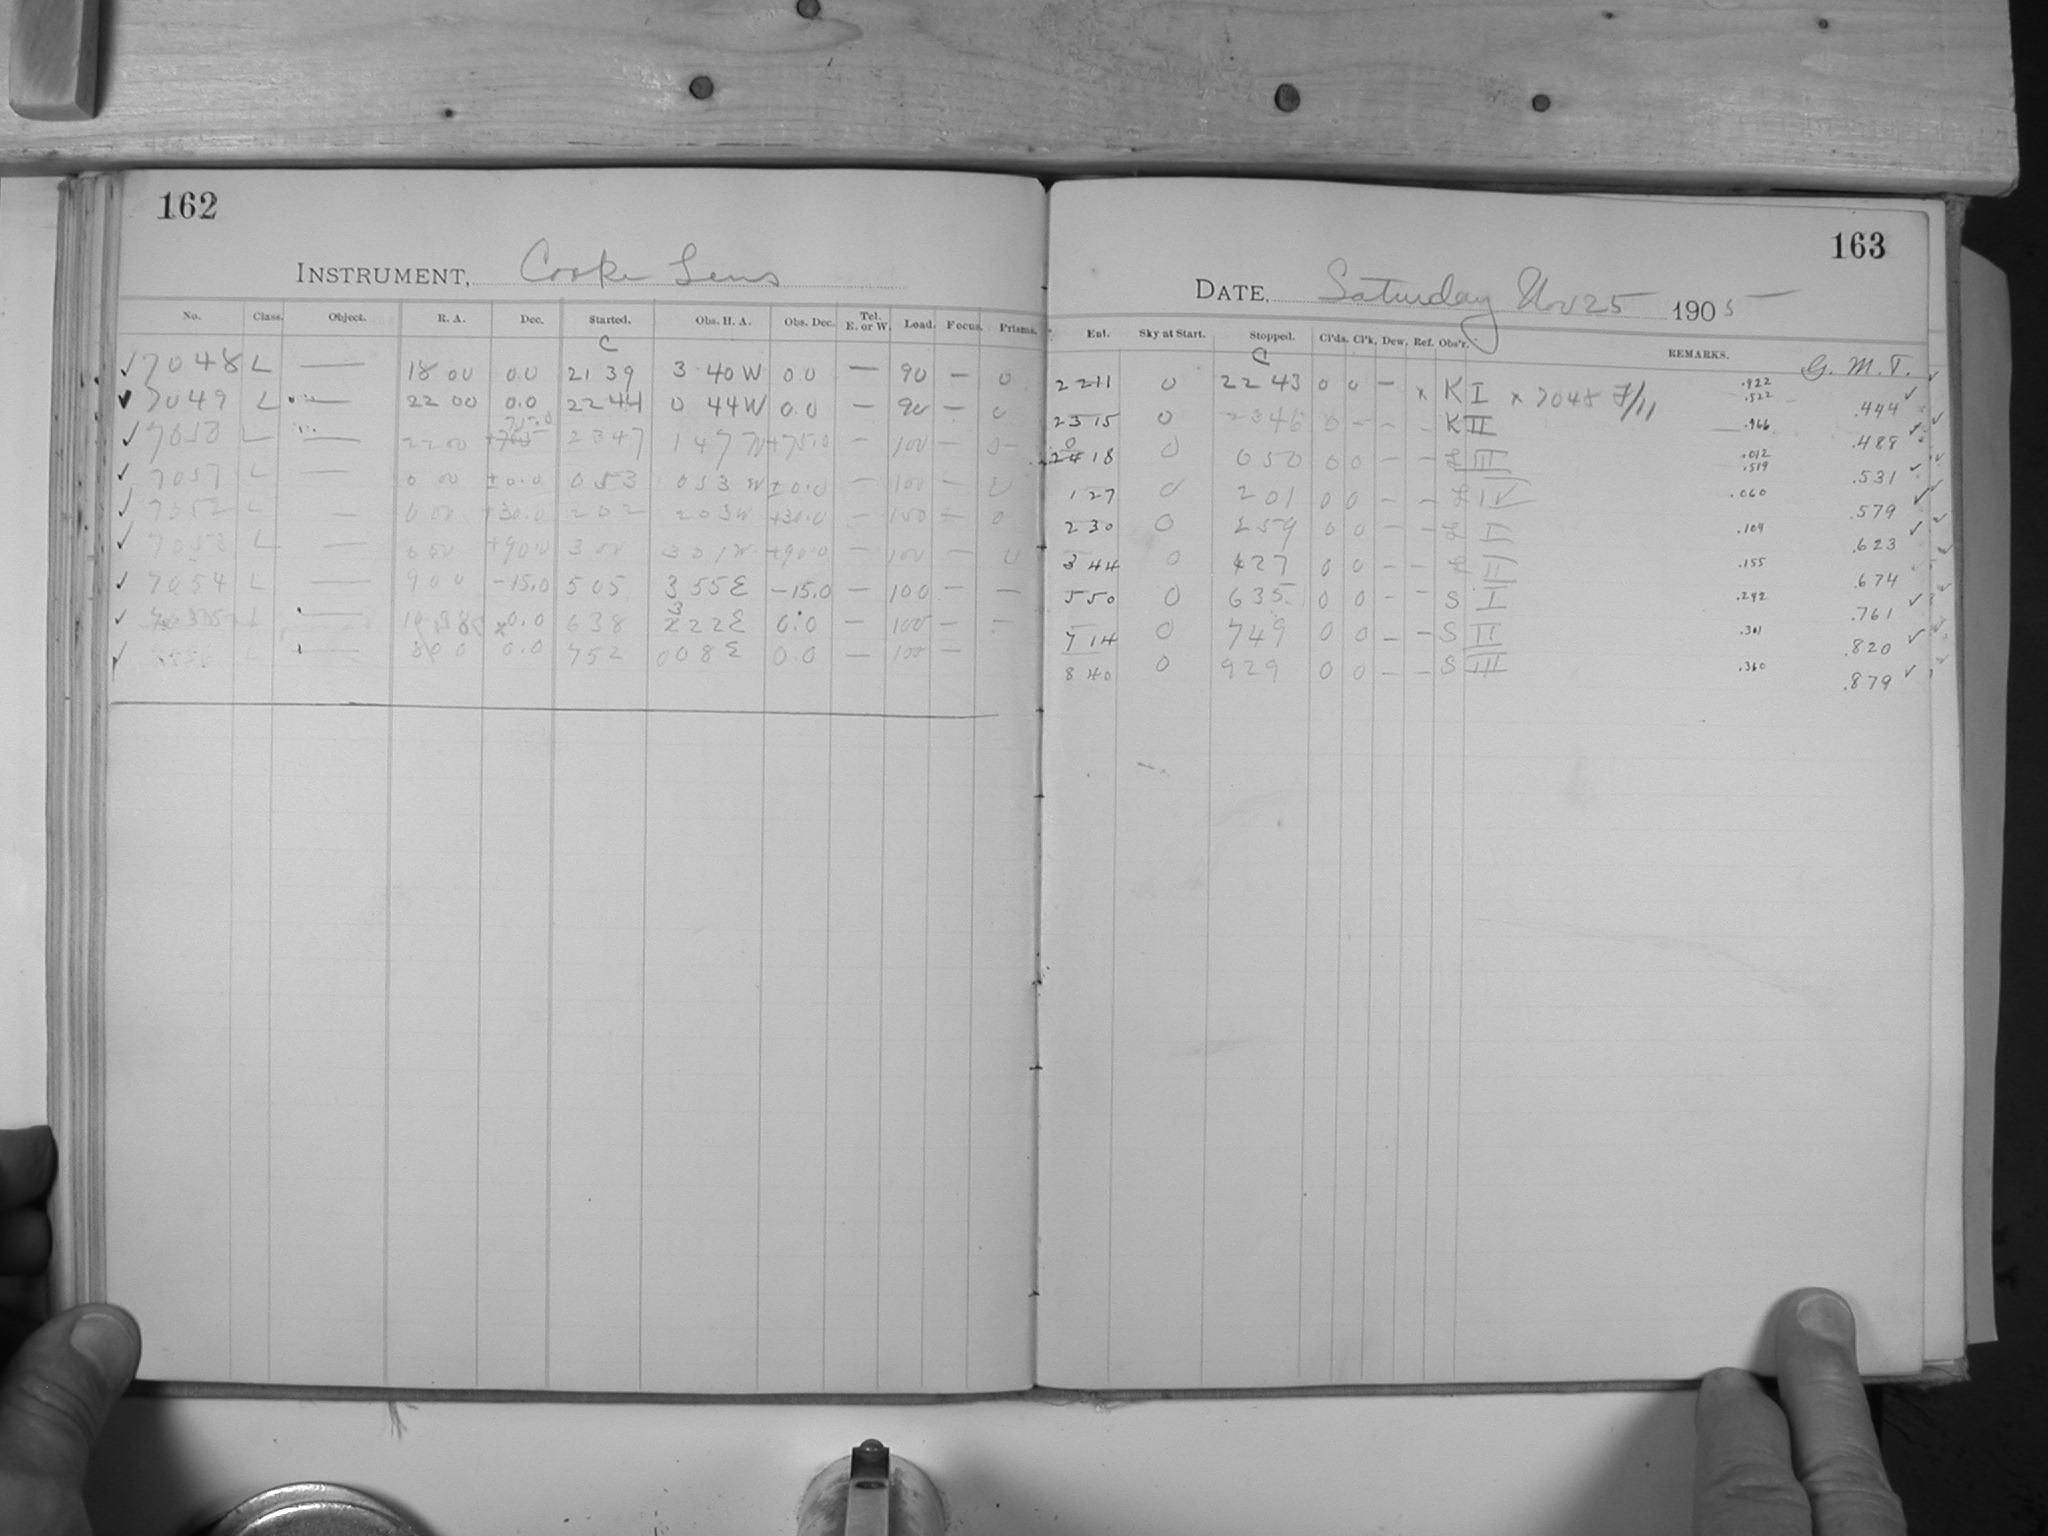 162
INSTRUMENT, Cooke Lens
No. Class. Object. R. A. Dec. Started. Obs. H. A. Obs. Dec. Tel. E. or W. Load. Focus. Prisms.
C
✓ 7048 L — 18 00 0.0 21 39 3 40 W 0.0 — 90 — 0
✓ 7049 L — 22 00 0.0 22 44 0 44 W 0.0 — 90 — 0
75.0
✓ 7050 L 22 00 2347 1 47 W +75.0 — 100 — 0
✓ 7051 L — 0 00 ±0.0 053 053 W ±0.0 — 100 — 0
✓ 7052 L — 0 00 +30.0 202 203 W +30.0 — 100 — 0
✓ 7053 L — 0 00 +90.0 300 301 W +90.0 — 100 — 0
✓ 7054 L — 9 00 -15.0 505 3 55 E -15.0 — 100 — —
✓ L — 0.0 638 3 22 E 0.0 — 100 — —
✓ L — 8 00 0.0 752 008 E 0.0 — 100 —
163
DATE, Saturday Nov 25 1905
Ent. Sky at Start. Stopped. Cl'ds. Cl'k. Dew. Ref. Obs'r. REMARKS. G. M. T.
C
2211 0 22 43 0 0 — × K I × 7048 F/11 .922 .522 .444 ✓
2315 0 2346 0 — — — K II .966 .488 ✓
18 0 050 0 0 — — L III .012 .519 .531 ✓
127 0 201 0 0 — — L IV .060 .579 ✓
230 0 259 0 0 — — L I .104 .623 ✓
344 0 427 0 0 — — L II .155 .674
550 0 635 0 0 — — S I .242 .761 ✓
714 0 749 0 0 — — S II .301 .820 ✓
840 0 929 0 0 — — S III .360 .879 ✓